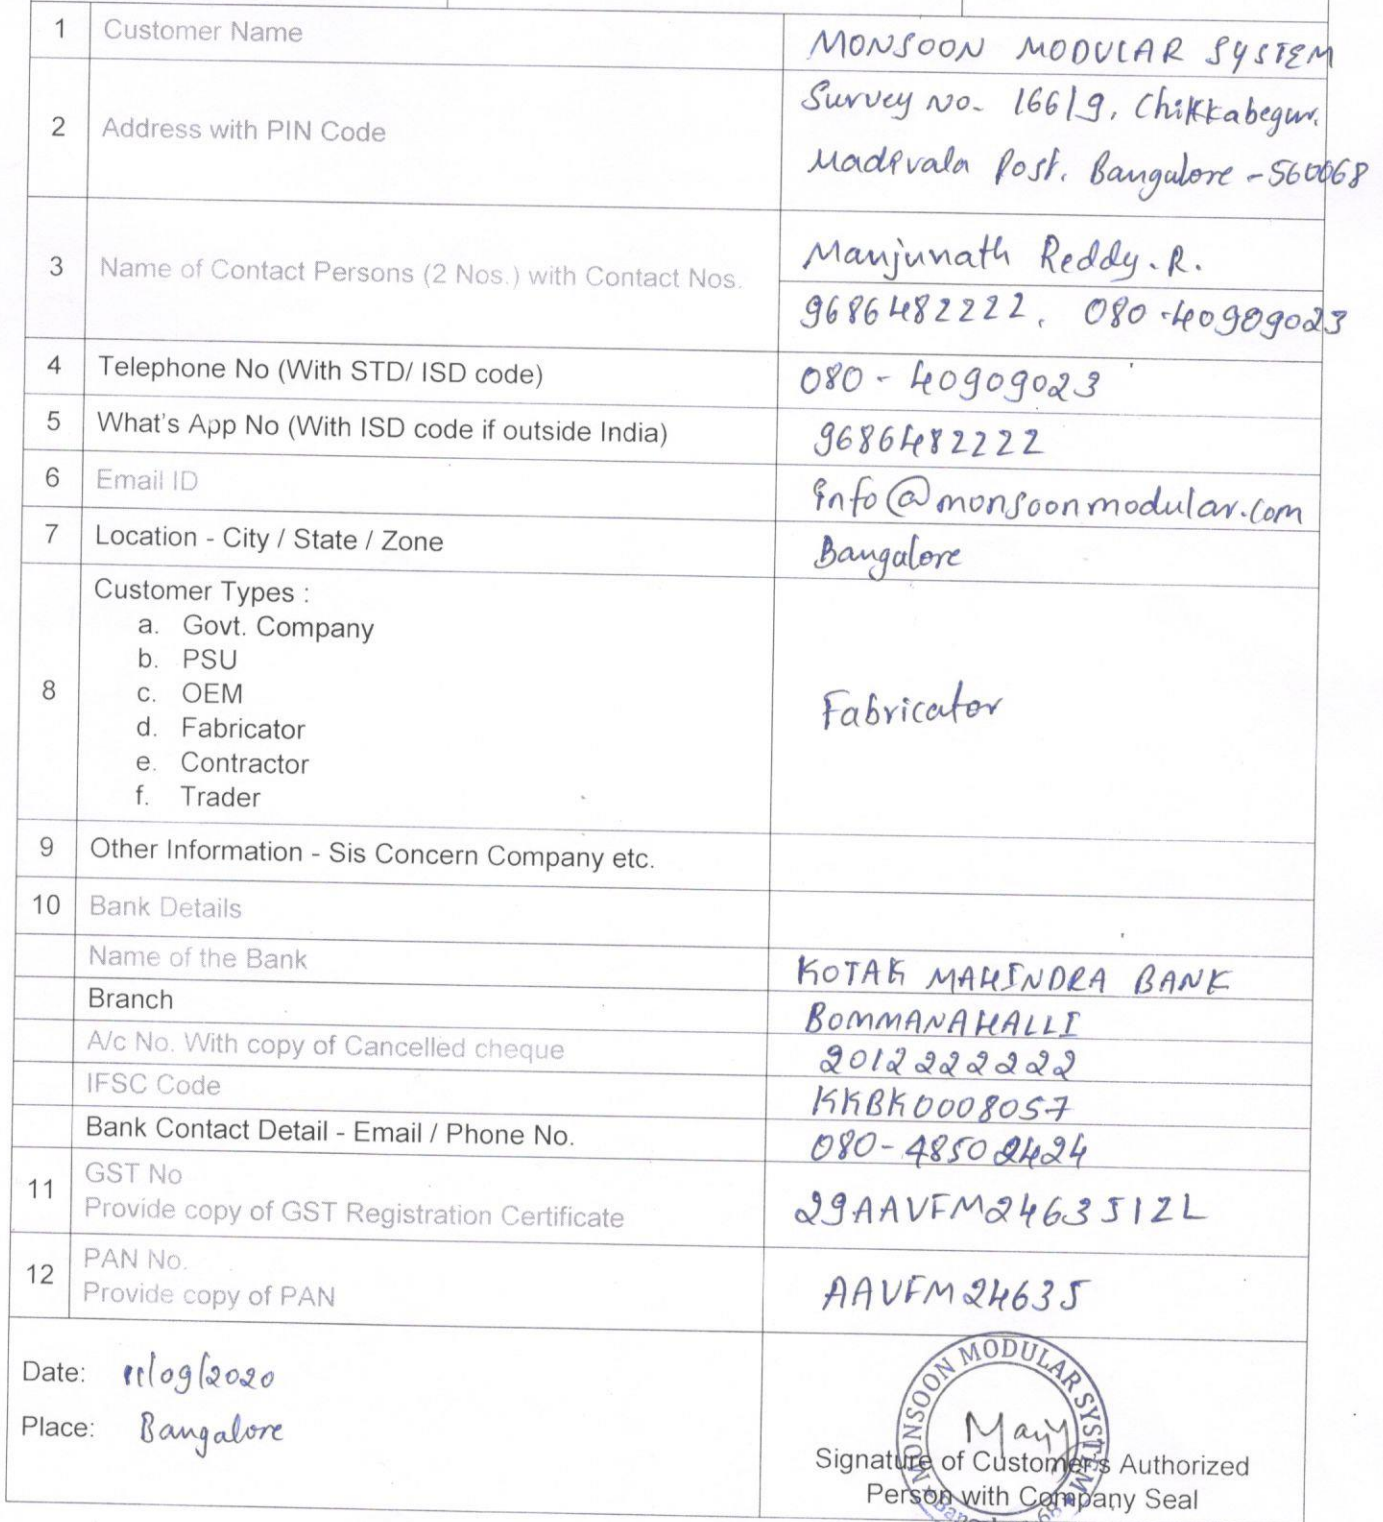 1 Customer Name MONSOON MODULAR SYSTEM
2 Address with PIN Code Survey No- 166/9, Chikkabegur.
Madivala Post. Bangalore - 560068
3 Name of Contact Persons (2 Nos.) with Contact Nos. Manjunath Reddy. R.
9686482222, 080-40909023
4 Telephone No (With STD/ ISD code) 080 - 40909023
5 What's App No (With ISD code if outside India) 9686482222
6 Email ID info@monsoonmodular.com
7 Location - City / State / Zone Bangalore
8 Customer Types :
a. Govt. Company
b. PSU
c. OEM
d. Fabricator
e. Contractor
f. Trader
Fabricator
9 Other Information - Sis Concern Company etc.
10 Bank Details
Name of the Bank KOTAK MAHINDRA BANK
Branch BOMMANAHALLI
A/c No. With copy of Cancelled cheque 2012222222
IFSC Code KKBK0008057
Bank Contact Detail - Email / Phone No. 080-48502424
11 GST No
Provide copy of GST Registration Certificate 29AAVFM2463J1ZL
12 PAN No.
Provide copy of PAN AAVFM2463J
Date: 11/09/2020
Place: Bangalore
MONSOON MODULAR SYSTEM
Signature of Customer's Authorized
Person with Company Seal